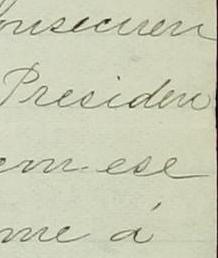 onsecuen
Presiden
con ese
me á